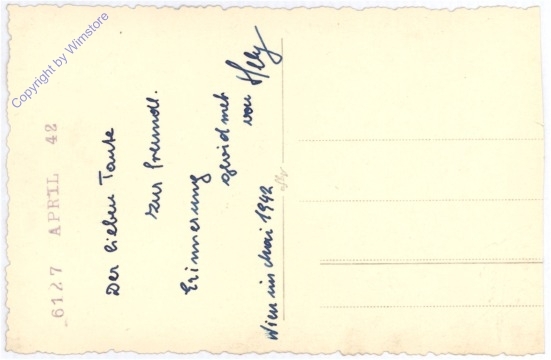 Der lieben Tante
zur freundl.
Erinnerung
gewidmet
von Helly
Wien im Mai 1942
6127 APRIL 42
Copyright by Wimstore